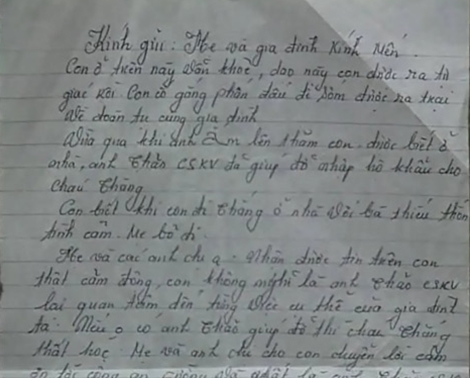 Kính gửi: Mẹ và gia đình kính mến.
Con ở trên này vẫn khoẻ, dạo này con được ra tự
giác rồi. Con cố gắng phấn đấu để sớm được ra trại
về đoàn tụ cùng gia đình
Vừa qua khi anh Ẩm lên thăm con được biết ở
nhà, anh Thảo CSKV đã giúp đỡ nhập hộ khẩu cho
cháu Thắng
Con biết khi con đi Thắng ở nhà với bà thiếu thốn
tình cảm. Mẹ bỏ đi.
Mẹ và các anh chị ạ. Nhận được tin trên con
thật cảm động, con không nghĩ là anh Thảo CSKV
lại quan tâm đến từng việc cụ thể của gia đình
ta. Nếu o có anh Thảo giúp đỡ thì cháu Thắng
thất học. Mẹ và anh chị cho con chuyển lời cảm
ơn tới công an và nhất là anh Thảo CSKV